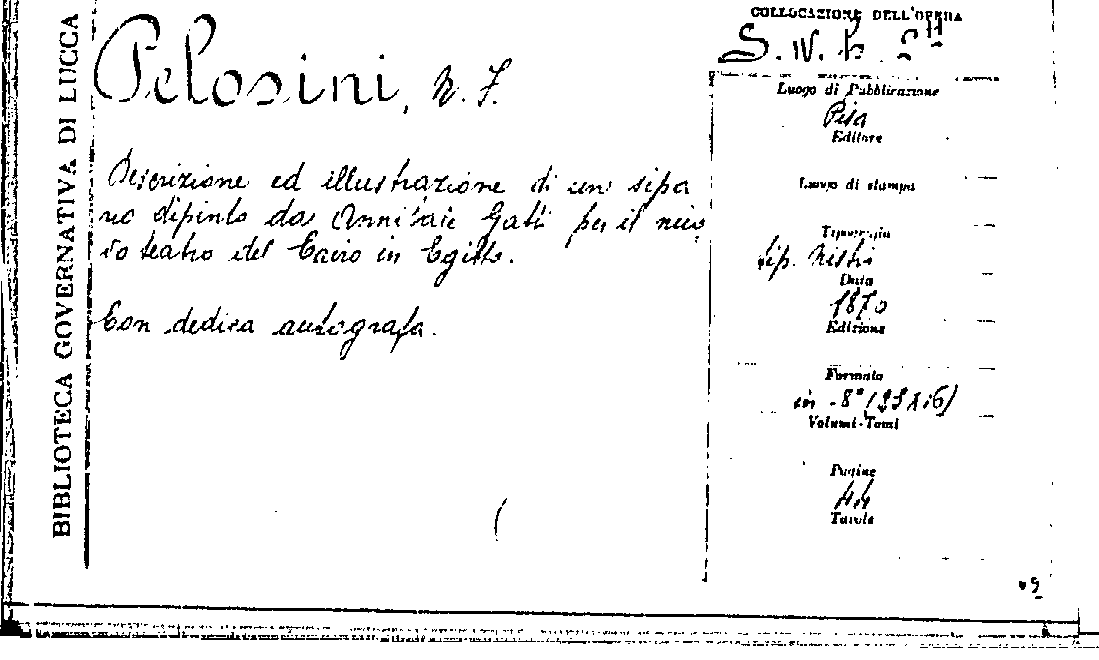 BIBLIOTECA GOVERNATIVA DI LUCCA
Pelosini, N. F.
Descrizione ed illustrazione di un sipa
rio dipinto da Annibale Gatti per il nuo
vo teatro del Cairo in Egitto.
Con dedica autografa.
COLLOCAZIONE DELL'OPERA
S. W. b.
Luogo di Pubblicazione
Pisa
Editore
Luogo di stampa
Tipografia
tip. Nistri
Data
1870
Edizione
Formato
in -8° (23X16)
Volumi-Tomi
Pagine
44
Tavole